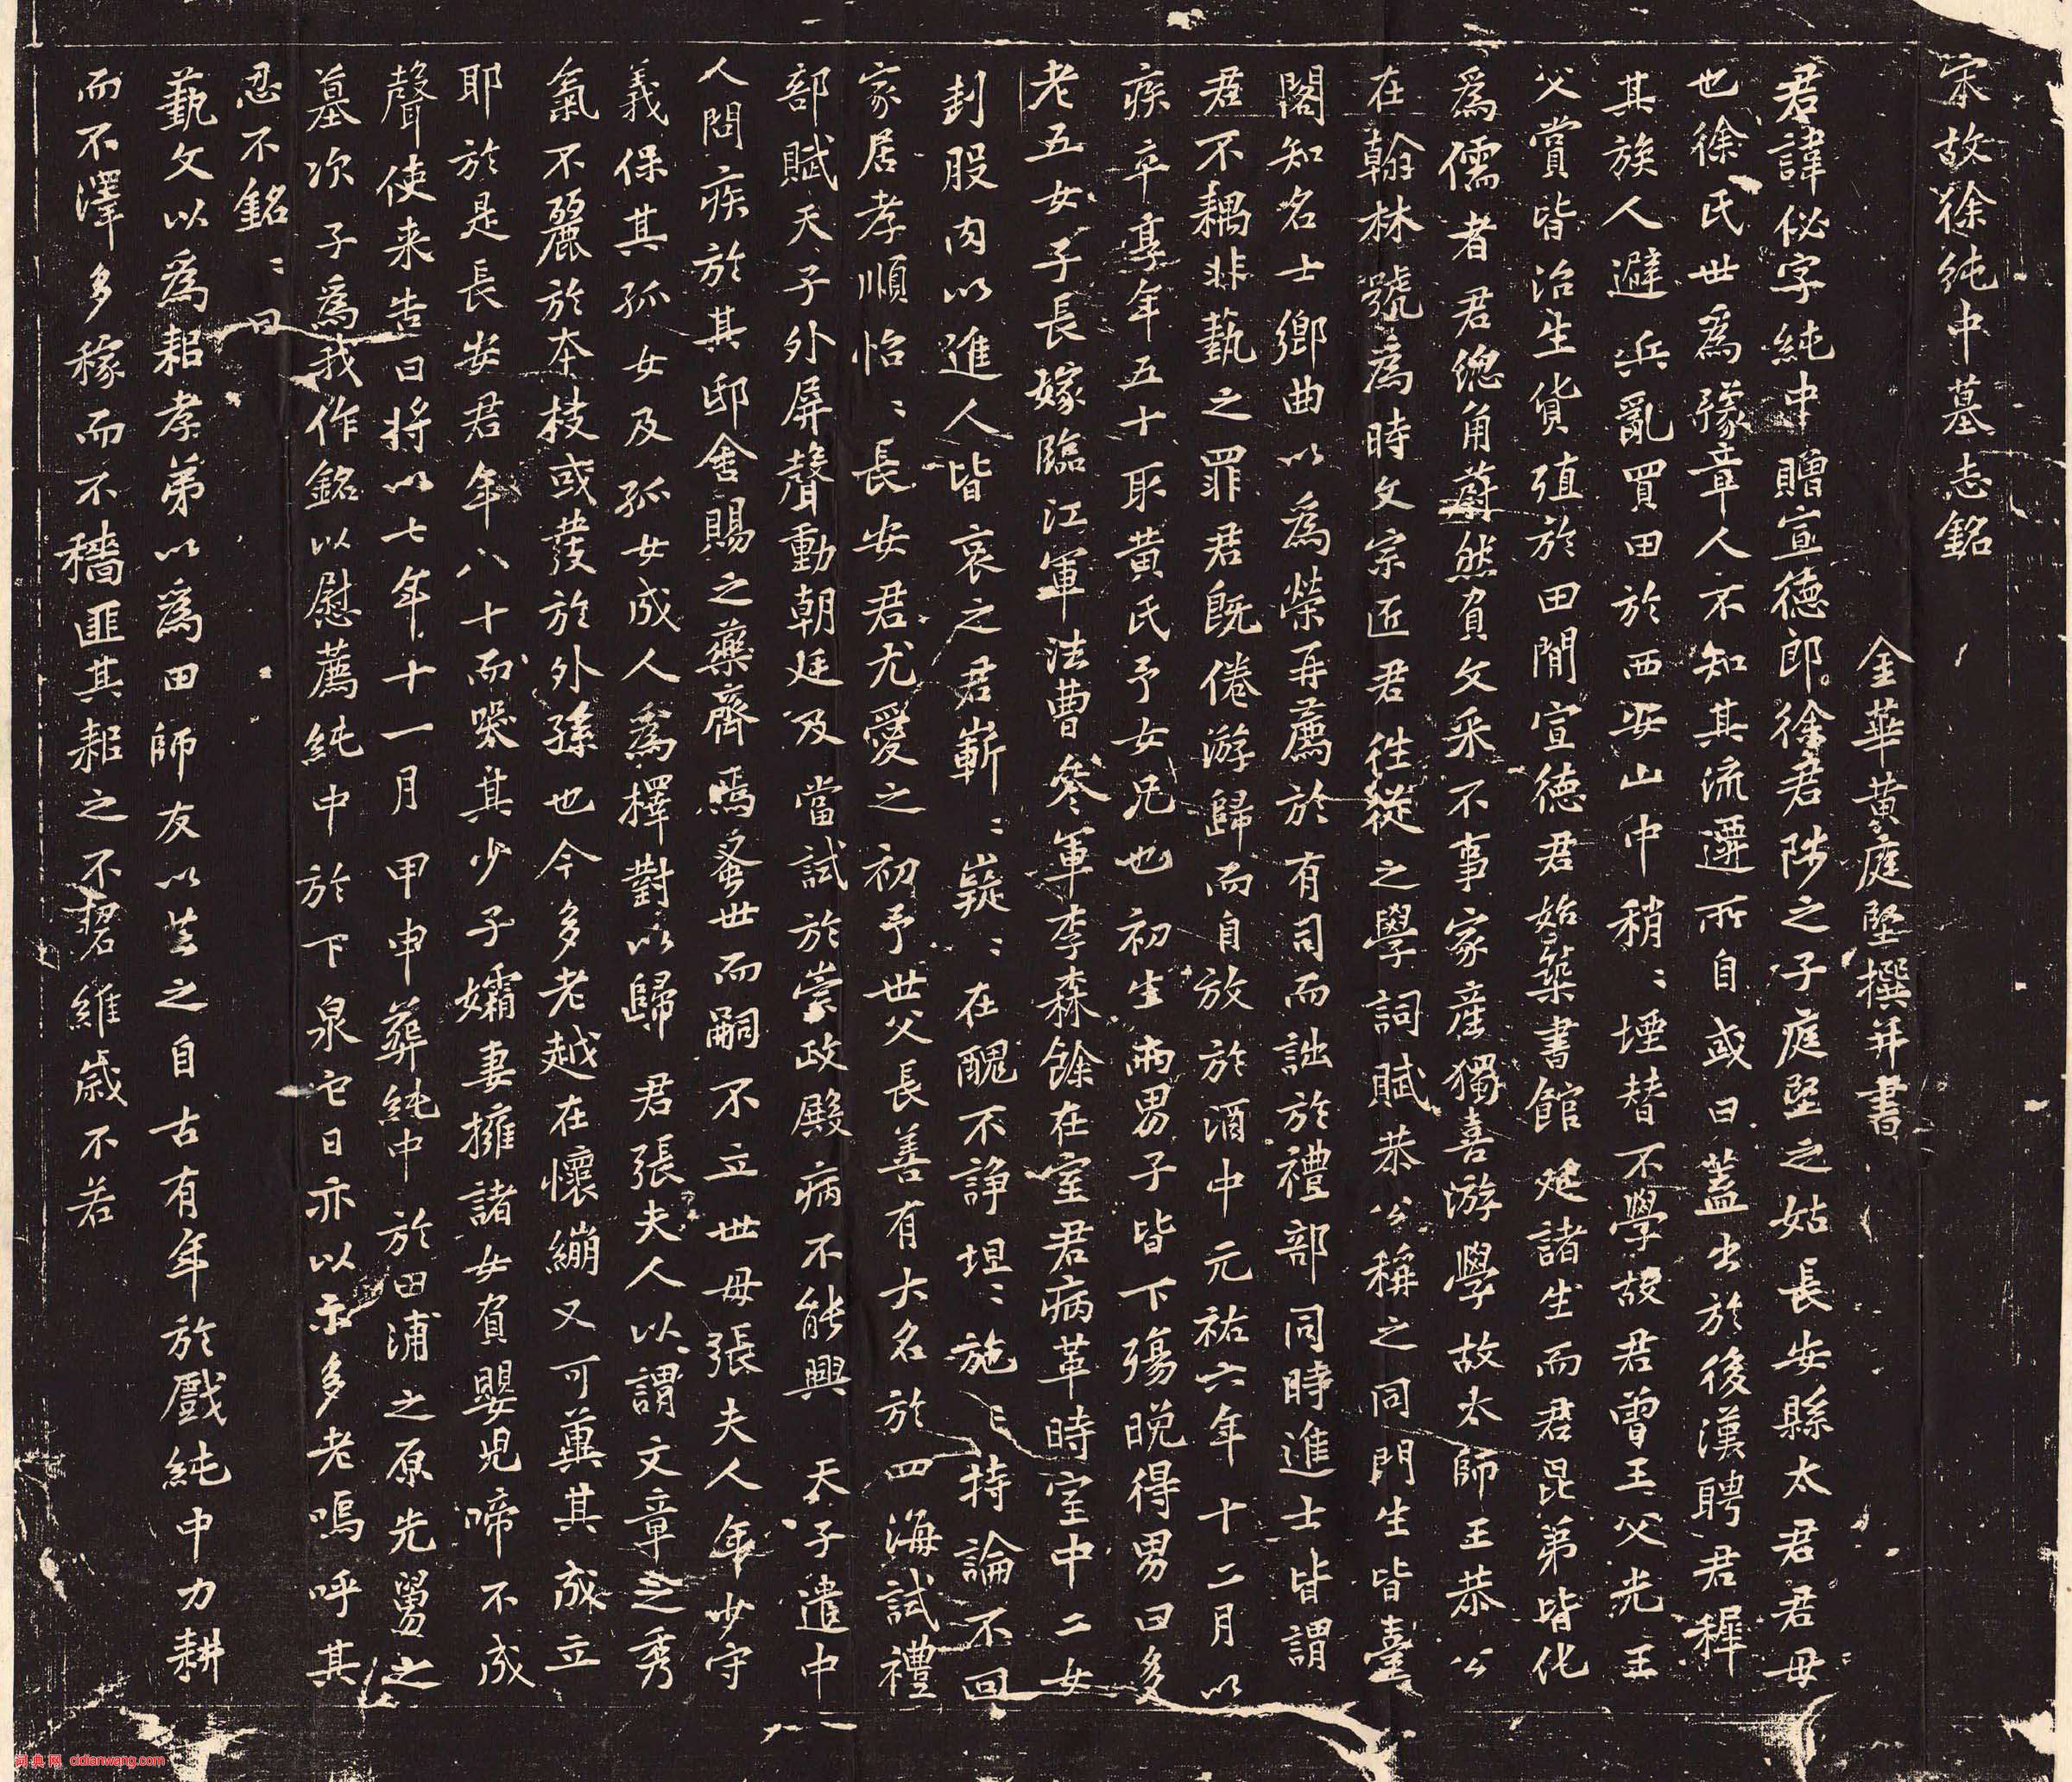 宋故徐純中墓志銘
金華黃庭堅撰并書
君諱佖字純中贈宣德郎徐君陟之子庭堅之姑長安縣太君君母
也徐氏世為豫章人不知其流遷所自或曰蓋出於後漢聘君稺
其族人避兵亂買田於西安山中稍〻堙替不學故君曾王父光王
父賞皆治生貨殖於田閒宣德君始築書館延諸生而君昆弟皆化
為儒者君總角蔚然負文采不事家產獨喜游學故太師王恭公
在翰林號為時文宗匠君往從之學詞賦恭公稱之同門生皆臺
閣知名士鄉曲以為榮再薦於有司而詘於禮部同時進士皆謂
君不耦非藝之罪君既倦游歸而自放於酒中元祐六年十二月以
疾卒享年五十取黃氏予女兄也初生兩男子皆下殤晚得男曰多
老五女子長嫁臨江軍法曹參軍李森餘在室君病革時室中二女
刲股肉以進人皆哀之君嶄〻嶷〻在醜不諍坦〻施〻持論不回
家居孝順怡〻長安君尤愛之初予世父長善有大名於四海試禮
部賦天子外屏聲動朝廷及當試於崇政殿病不能興天子遣中
人問疾於其邸舍賜之藥齊焉蚤世而嗣不立世母張夫人年少守
義保其孤女及孤女成人為擇對以歸君張夫人以謂文章之秀
氣不麗於本枝或發於外孫也今多老越在懷繃又可冀其成立
耶於是長安君年八十而哭其少子孀妻擁諸女負嬰兒啼不成
聲使来告曰将以七年十一月甲申葬純中於田浦之原先舅之
墓次子為我作銘以慰薦純中於下泉它日亦以示多老嗚呼其
忍不銘〻曰
藝文以為耜孝弟以為田師友以芸之自古有年於戲純中力耕
而不澤多稼而不穡匪其耜之不⁠維歲不若